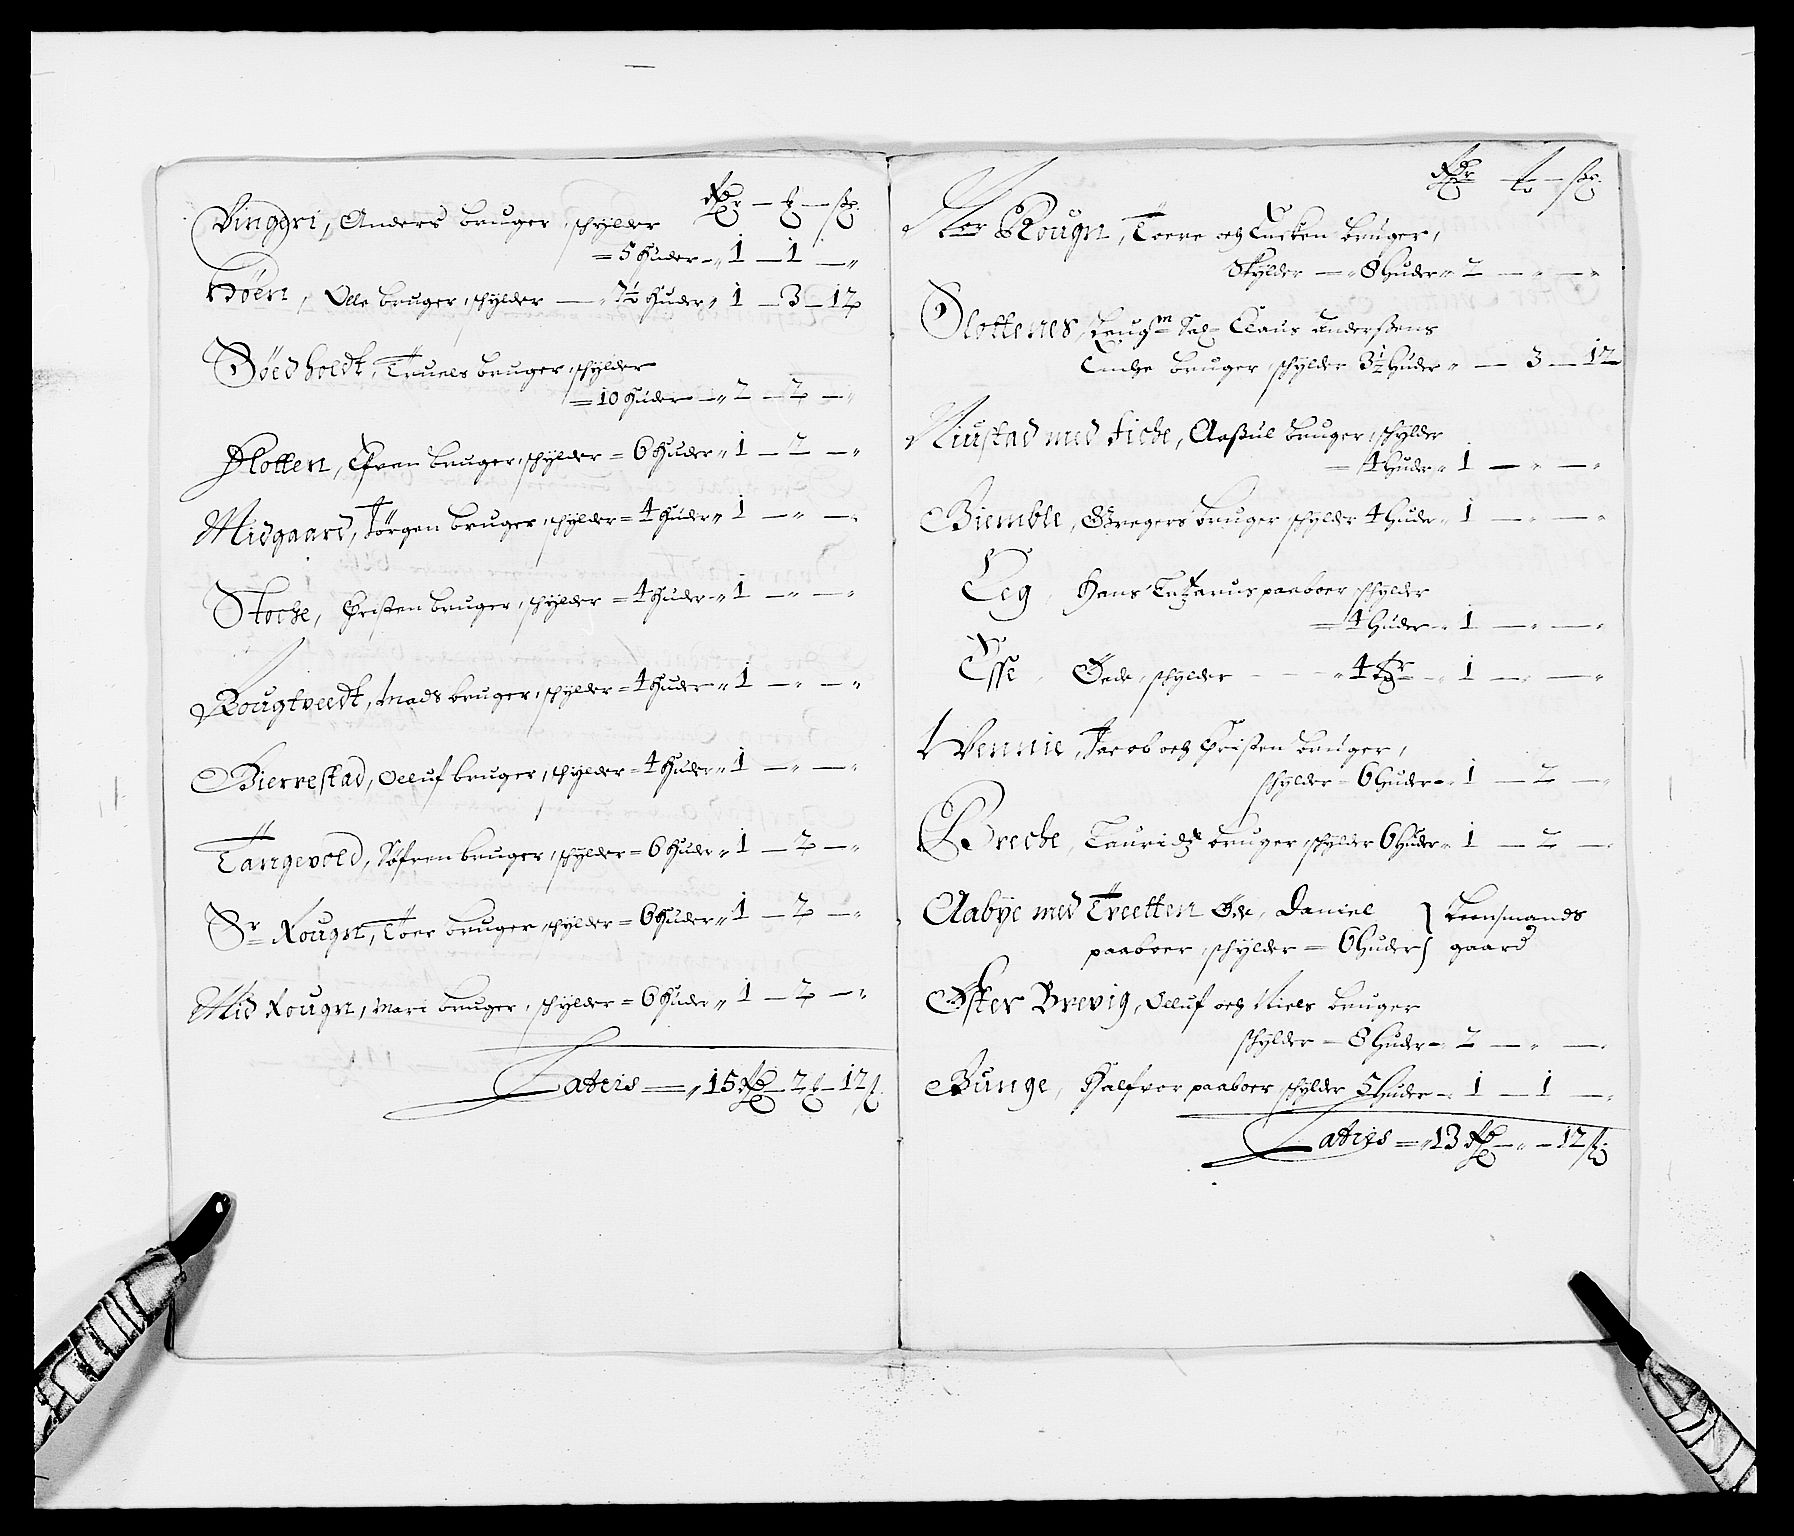 Rdr — ʒ — sk.
Vinggri, Anders bruger, schylder
= 5 Huder — „ 1 — 1 — „
Höen, Olle bruger, schylder — „ 7½ Huder „ 1 — 3 — 12
Söedholdt, Truels bruger schylder
= 10 Huder — „ 2 — 2 — „
Flotten, Ifven bruger, schylder = 6 Huder „ 1 — 2 — „
Midgaard, Jörgen bruger, schylder = 4 Huder „ 1 — „ — „
Stoche, Christen bruger, schylder = 4 Huder — „ 1 — „ — „
Rougtvedt, Mads bruger, schylder = 4 Huder — „ 1 — „ — „
Bierrestad, Olluf bruger, schylder = 4 Huder — „ 1 — „ — „
Tangevold, Söfren bruger, schylder = 6 Huder „ 1 — 2 — „
Sr Rougn, Toer bruger, schylder = 6 Huder „ 1 — 2 — „
Mid Rougn, Mari bruger, schylder = 6 Huder „ 1 — 2 — „
Lateris = „ 15 Rd — 2 ʒ — 12 s
Rdr — ʒ — sk.
Nor Rougn, Toere och bruger,
Skylder — „ 8 Huder „ 2 — „ — „
Slottenes, Laugm Sal Claus Anderssens
Encke bruger, schylder 3½ Huder „ — 3 — 12
Niustad med Fiche, Aassul bruger, schylder
= 4 Huder „ 1 — „ — „
Biemble, Gregers bruger schylder 4 Huder „ 1 — „ — „
Eeg, Hans Lazarus paaboer schylder
= 4 Huder — „ 1 — „ — „
Esse, Öede, schylder — „ 4 Hr „ 1 — „ — „
Vennie, Jacob och Christen bruger,
schylder = 6 Huder — „ 1 — 2 — „
Breche, Lauridz bruger, schylder 6 Huder „ 1 — 2 — „
Aabye med Treetten Öde, Daniel } Leensmands
paaboer, schylder = 6 Huder } gaard
Öster Brevig, Olluf och Niels bruger
schylder — 8 Huder — „ 2 — „ — „
Bunge, Halfvor paaboer schylder 5 Huder — „ 1 — 1 — „
Lateris = „ 13 Rd — „ — 12 s